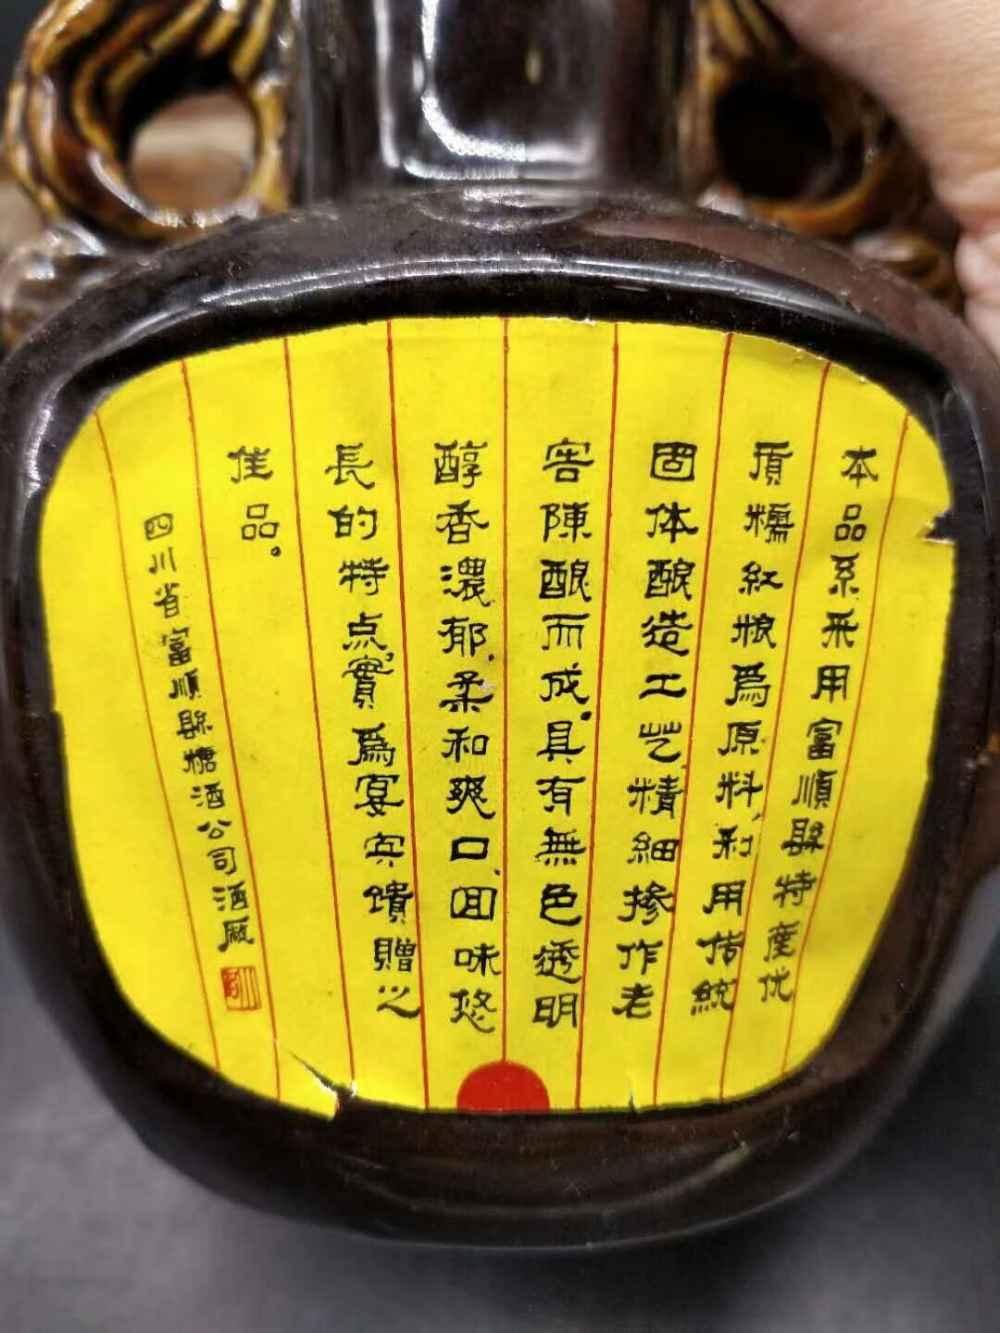 本品系采用富順縣特産优
质糯红粮為原料,利用传統
固体酿造工艺,精细掺作老
窖陳酿而成,具有無色透明
醇香濃郁,柔和爽口,回味悠
長的特点,實為宴宾馈贈之
佳品。
四川省富順縣糖酒公司酒厰